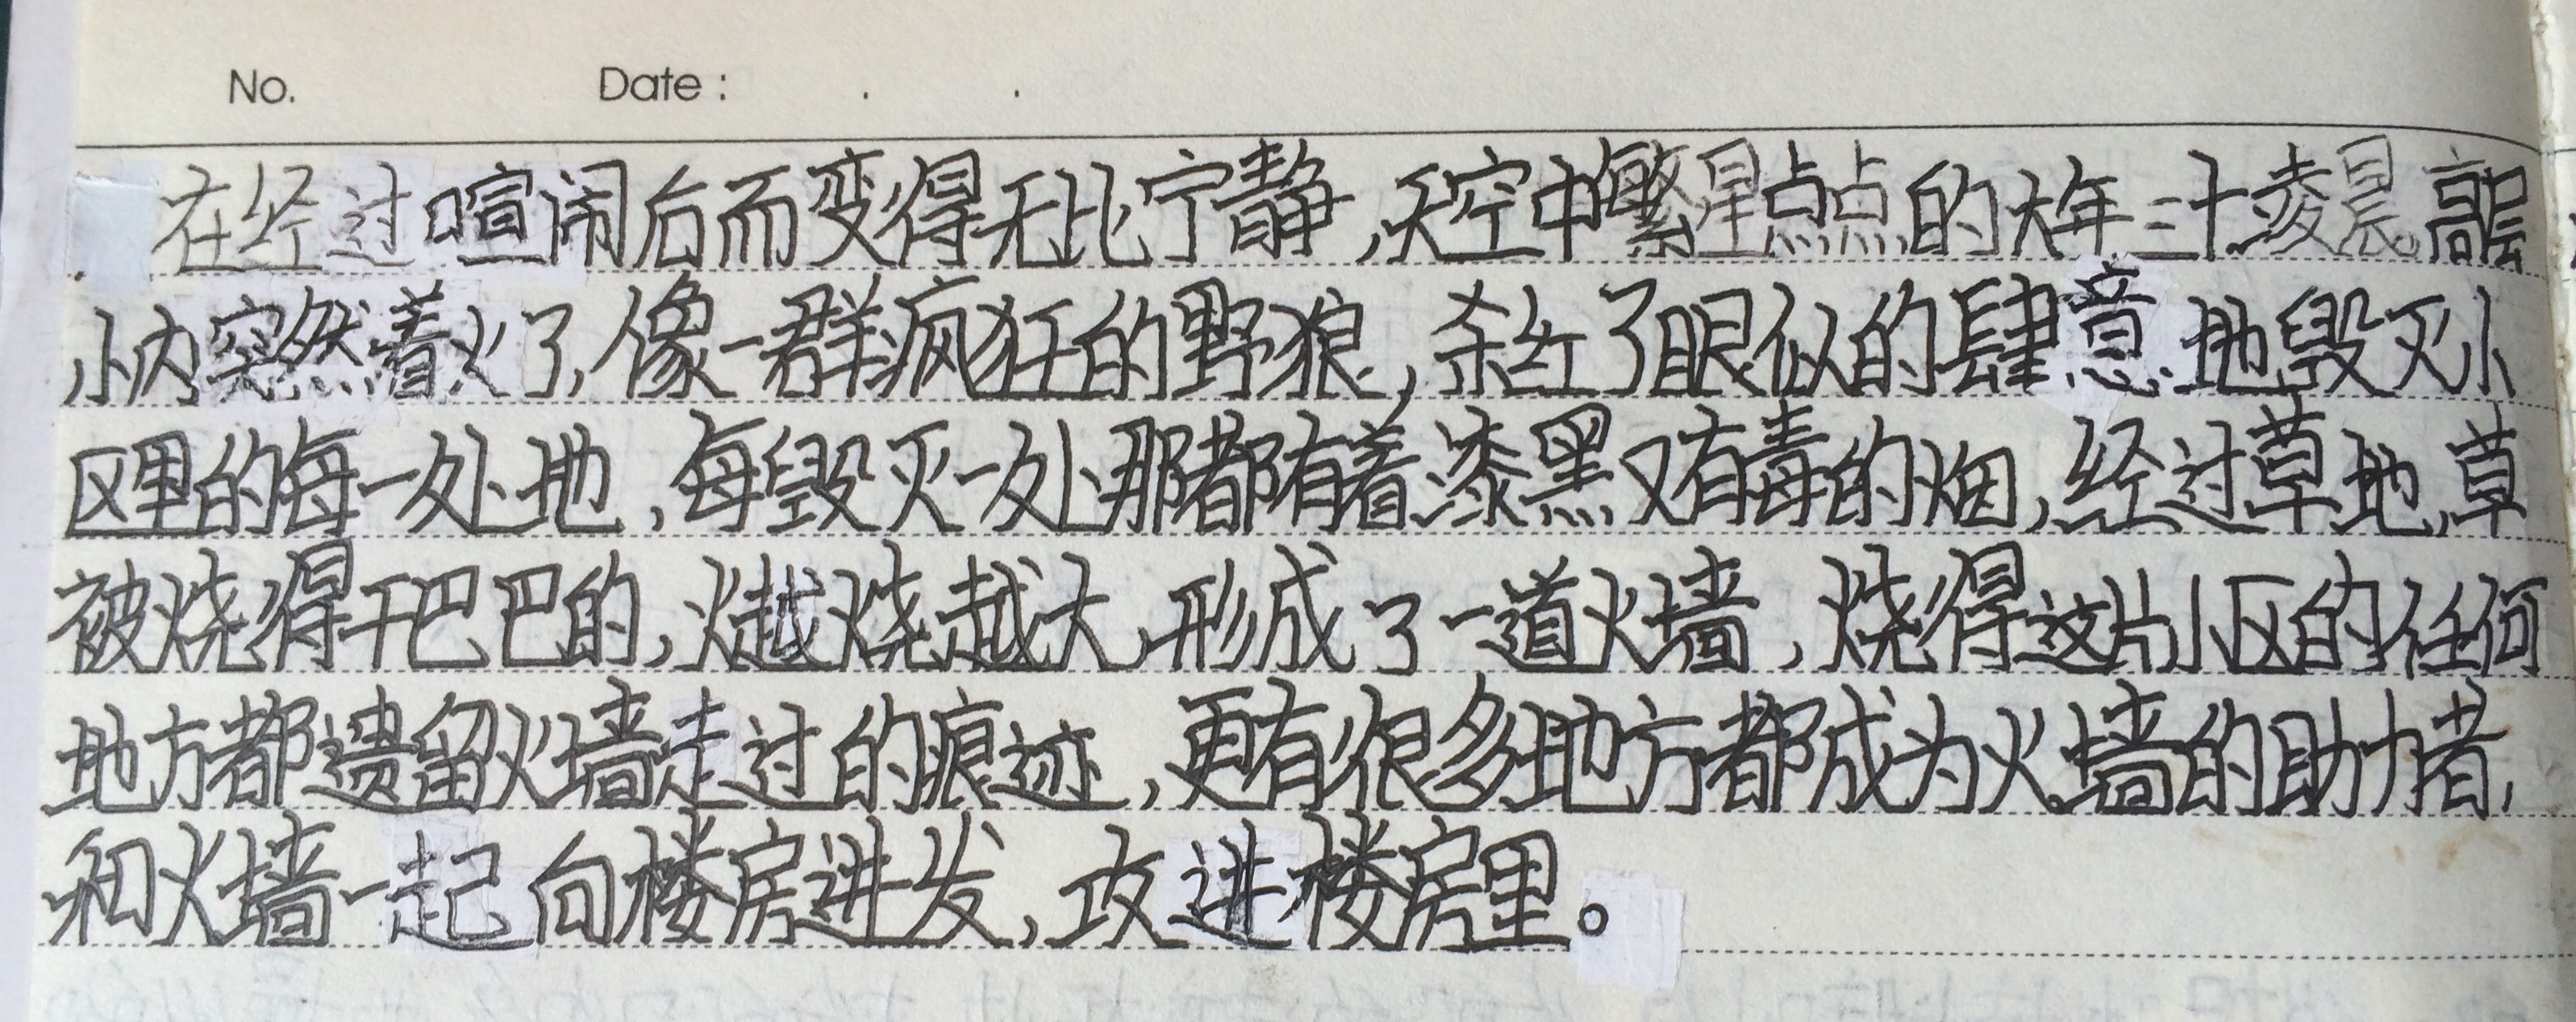 No. Date : . .
在经过喧闹后而变得无比宁静,天空中繁星点点的大年三十凌晨,高层
小内突然着火了,像一群疯狂的野狼,杀红了眼似的肆意地毁灭小
区里的每一处地,每毁灭一处那都有着漆黑又有毒的烟,经过草地,草
被烧得干巴巴的,火越烧越大,形成了一道火墙,烧得这片小区的任何
地方都遗留火墙走过的痕迹,更有很多地方都成为火墙的助力者,
和火墙一起向楼房进发,攻进楼房里。